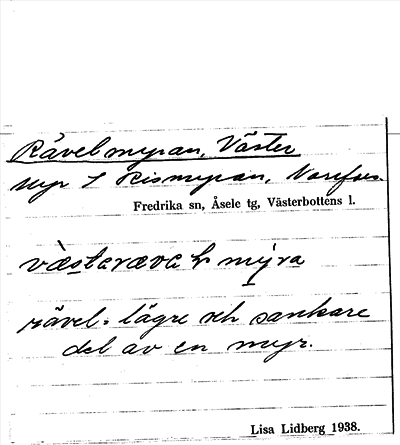 Rävelmyran, Väster
Myr S Rismyran, Norrfors.
Fredrika sn, Åsele tg, Västerbottens l.
rävel: lägre och sankare
del av en myr.
Lisa Lidberg 1938.